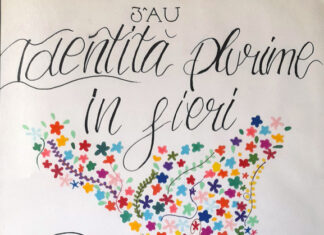 3^AU
Identità plurime
in fieri